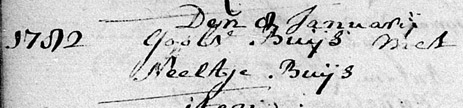 Den 8 Januarij
1782 Goolt Buijs met
Neeltje Buijs